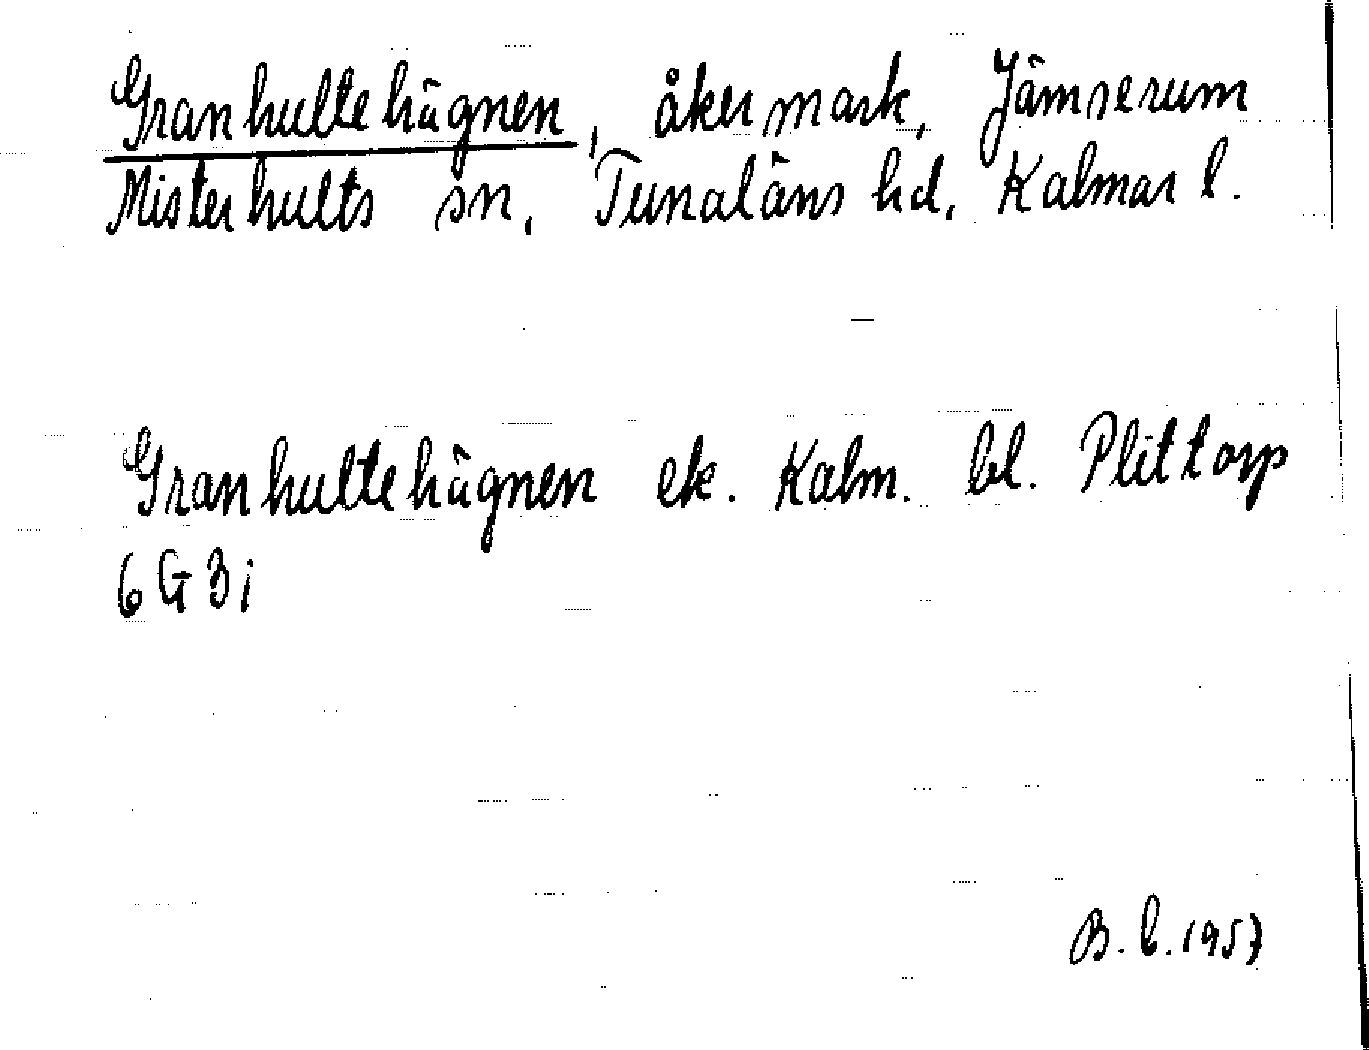 Granhultehägnen, åkermark, Jämserum
Misterhults sn, Tunaläns hd, Kalmar l.
Granhultehägnen ek. Kalm. bl. Plittorp
6G3i
B. l. 1957